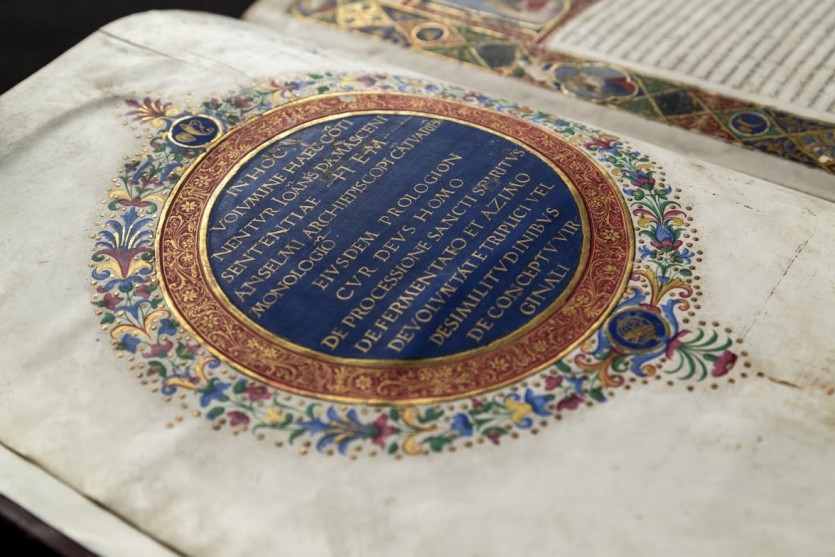 IN HOC
VOLVMINE HAEC CŌTI
NENTVR IOĀNS DAMASCENI
SENTENTIAE ITEM
ANSELMI ARCHIEPISCOPI CĀTVARIĒSIS
MONOLOGIŌ
EIVSDEM PROLOGION
CVR DEVS HOMO
DE PROCESSIONE SANCTI SPIRITVS
DE FERMENTATO ET AZIMO
DE VOLVNTATE TRIPLICI VEL
DE SIMILITVDINIBVS
DE CONCEPTV VIR
GINALI